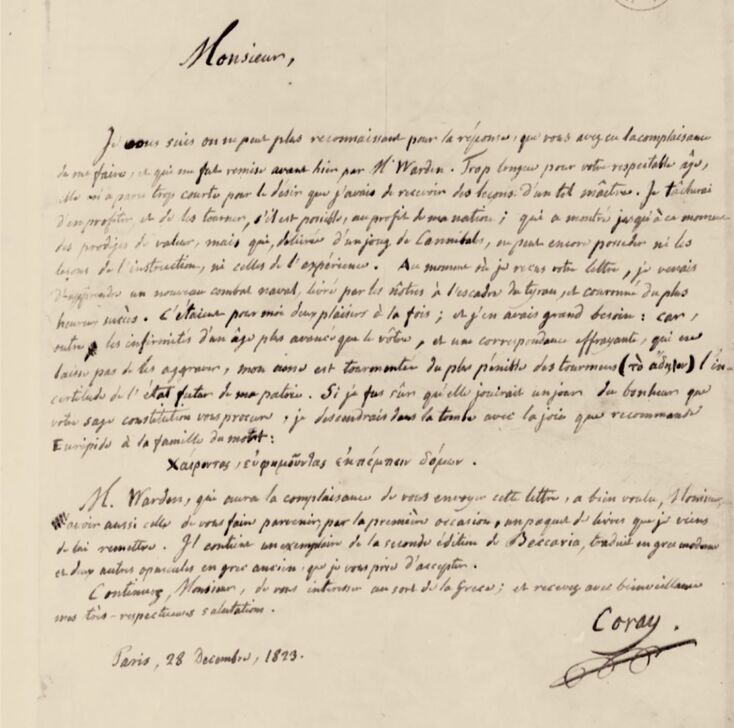 Monsieur,
Je vous suis on ne peut plus reconnaissant pour la réponse, que vous avez eu la complaisance
de me faire, et qui me fut remise avant hier par Mr Warden. Trop longue pour votre respectable âge,
elle m'a paru trop courte pour le désir que j'avais de recevoir des leçons d'un tel maître. Je tâcherai
d'en profiter, et de les tourner, s'il est possible, au profit de ma nation; qui a montré jusqu'à ce moment
des prodiges de valeur, mais qui, délivrée d'un joug de Cannibales, ne peut encore posséder ni les
leçons de l'instruction, ni celles de l'expérience. Au moment où je reçus votre lettre, je venais
d'apprendre un nouveau combat naval, livré par les nôtres à l'escadre du tyran, et couronné du plus
heureux succès. C'étaient pour moi deux plaisirs à la fois; et j'en avais grand besoin: car,
outre les infirmités d'un âge plus avancé que le vôtre, et une correspondance effrayante, qui ne
laisse pas de les aggraver, mon âme est tourmentée du plus pénible des tourmens (τὸ ἄδηλον) l'in-
certitude de l'état futur de ma patrie. Si je fus sûr qu'elle jouirait un jour du bonheur que
votre sage constitution vous procure, je descendrais dans la tombe avec la joie que recommande
Euripide à la famille du mort:
Χαίροντας, εὐφημοῦντας ἐκπέμπειν δόμων.
M. Warden, qui aura la complaisance de vous envoyer cette lettre, a bien voulu, Monsieur,
avoir aussi celle de vous faire parvenir par la première occasion, un paquet de livres que je viens
de lui remettre. Il contient un exemplaire de la seconde édition de Beccaria, traduit en grec moderne
et deux autres opuscules en grec ancien, que je vous prie d'accepter.
Continuez, Monsieur, de vous intéresser au sort de la Grèce; et recevez avec bienveillance
mes très-respectueuses salutations.
Coray.
Paris, 28 Decembre, 1823.